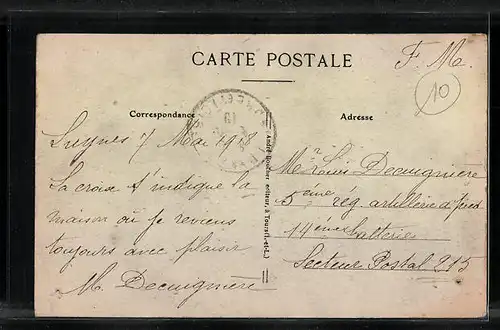 CARTE POSTALE
F. M
10
Correspondance
Adresse
Luynes 7 Mai 1918
La croix t'indique la
maison où je reviens
toujours avec plaisir
M. Decuignière
Mr Louis Decuignière
5ème rég. artillerie à pied
14ème batterie
Secteur Postal 215